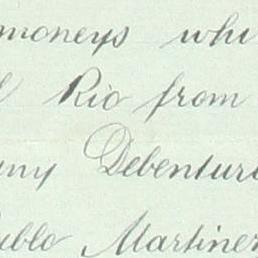 moneys whi
l Rio from
any Debentur
ublo Martinez